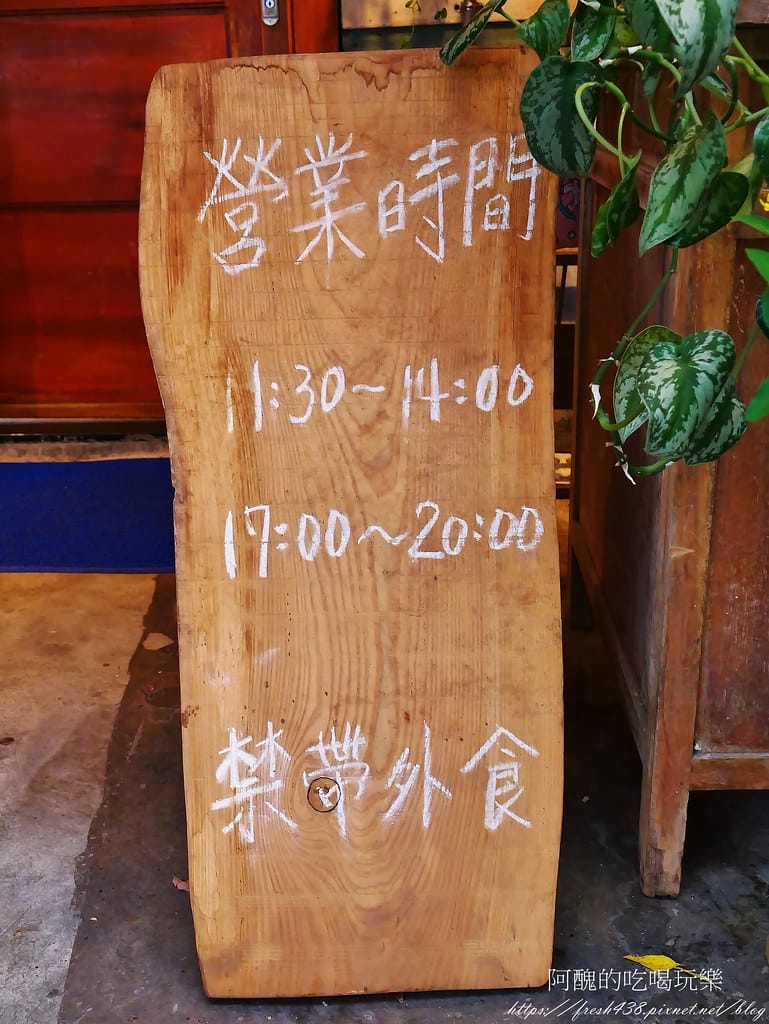 營業時間
11:30～14:00
17:00～20:00
禁帶外食
阿醜的吃喝玩樂
https://fresh438.pixnet.net/blog